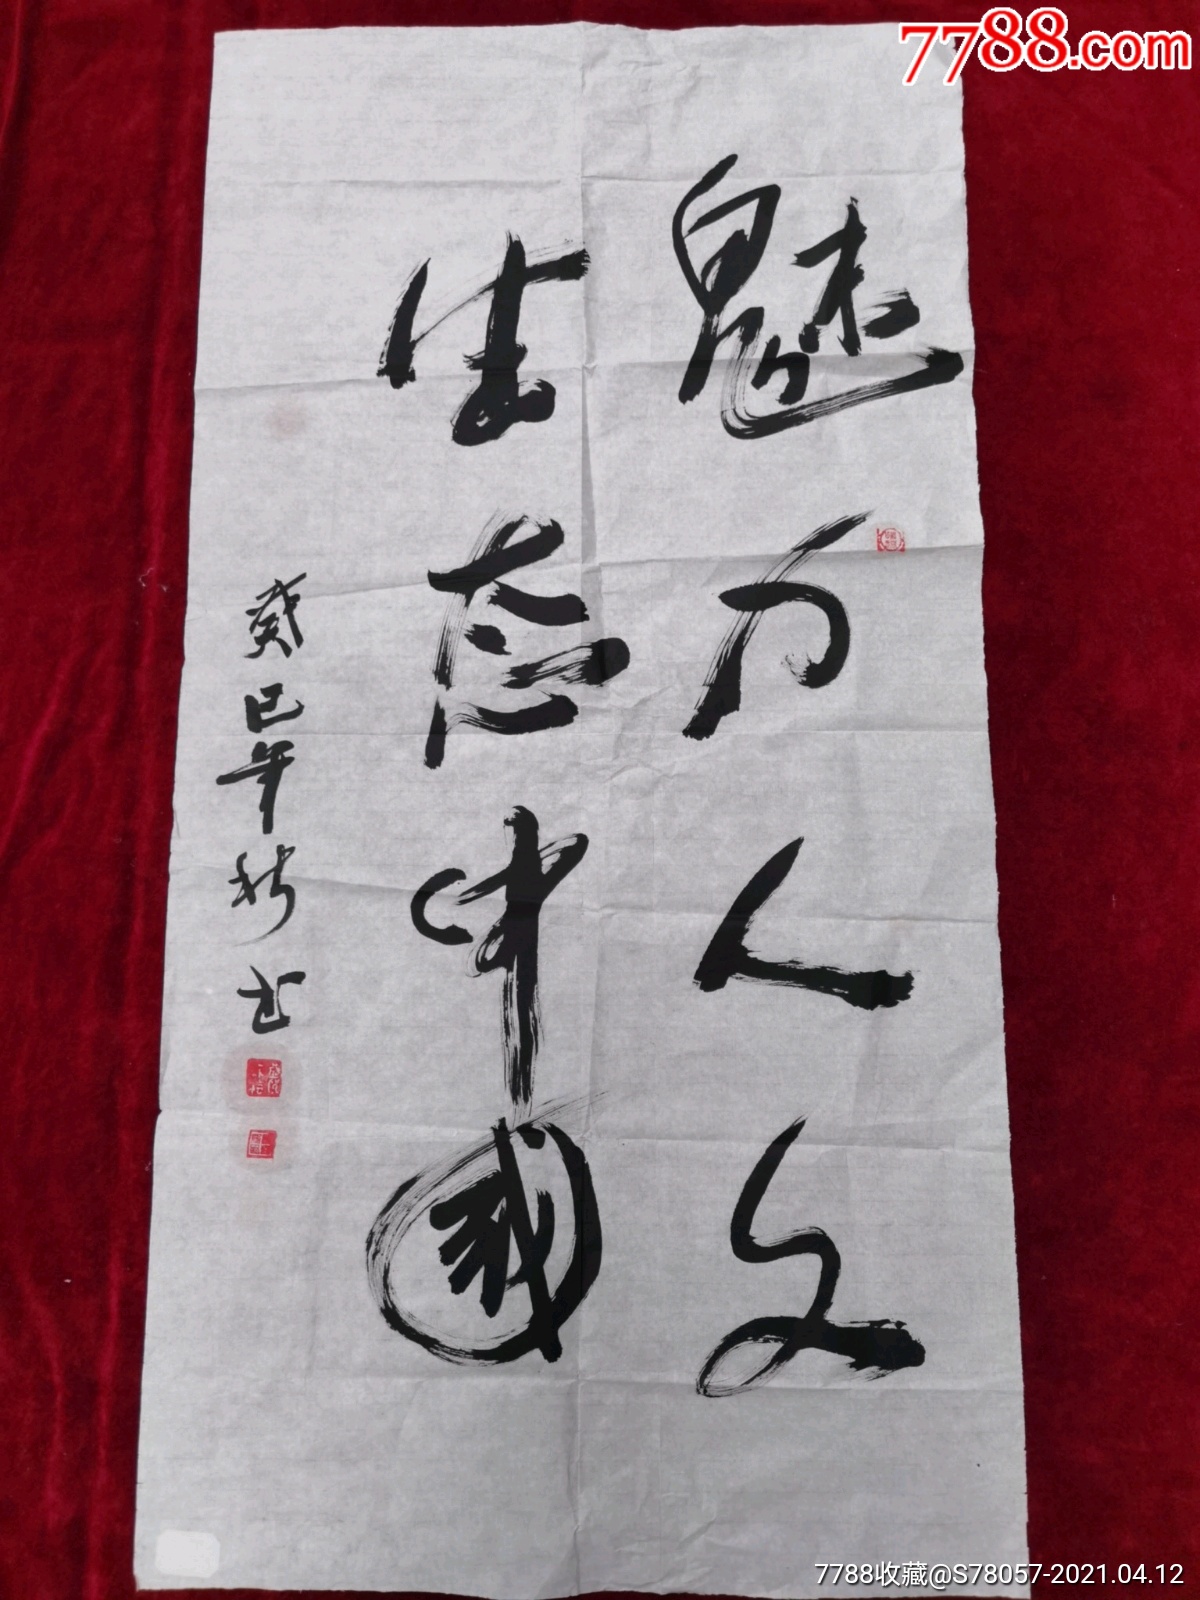 7788.com
魅力人文
生态中国
癸巳年秋书
7788收藏@S78057-2021.04.12